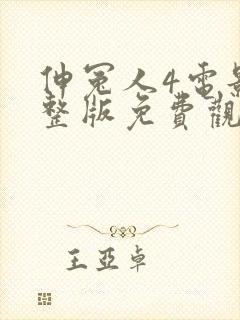 伸冤人4電影
整版免費觀
王亞卓